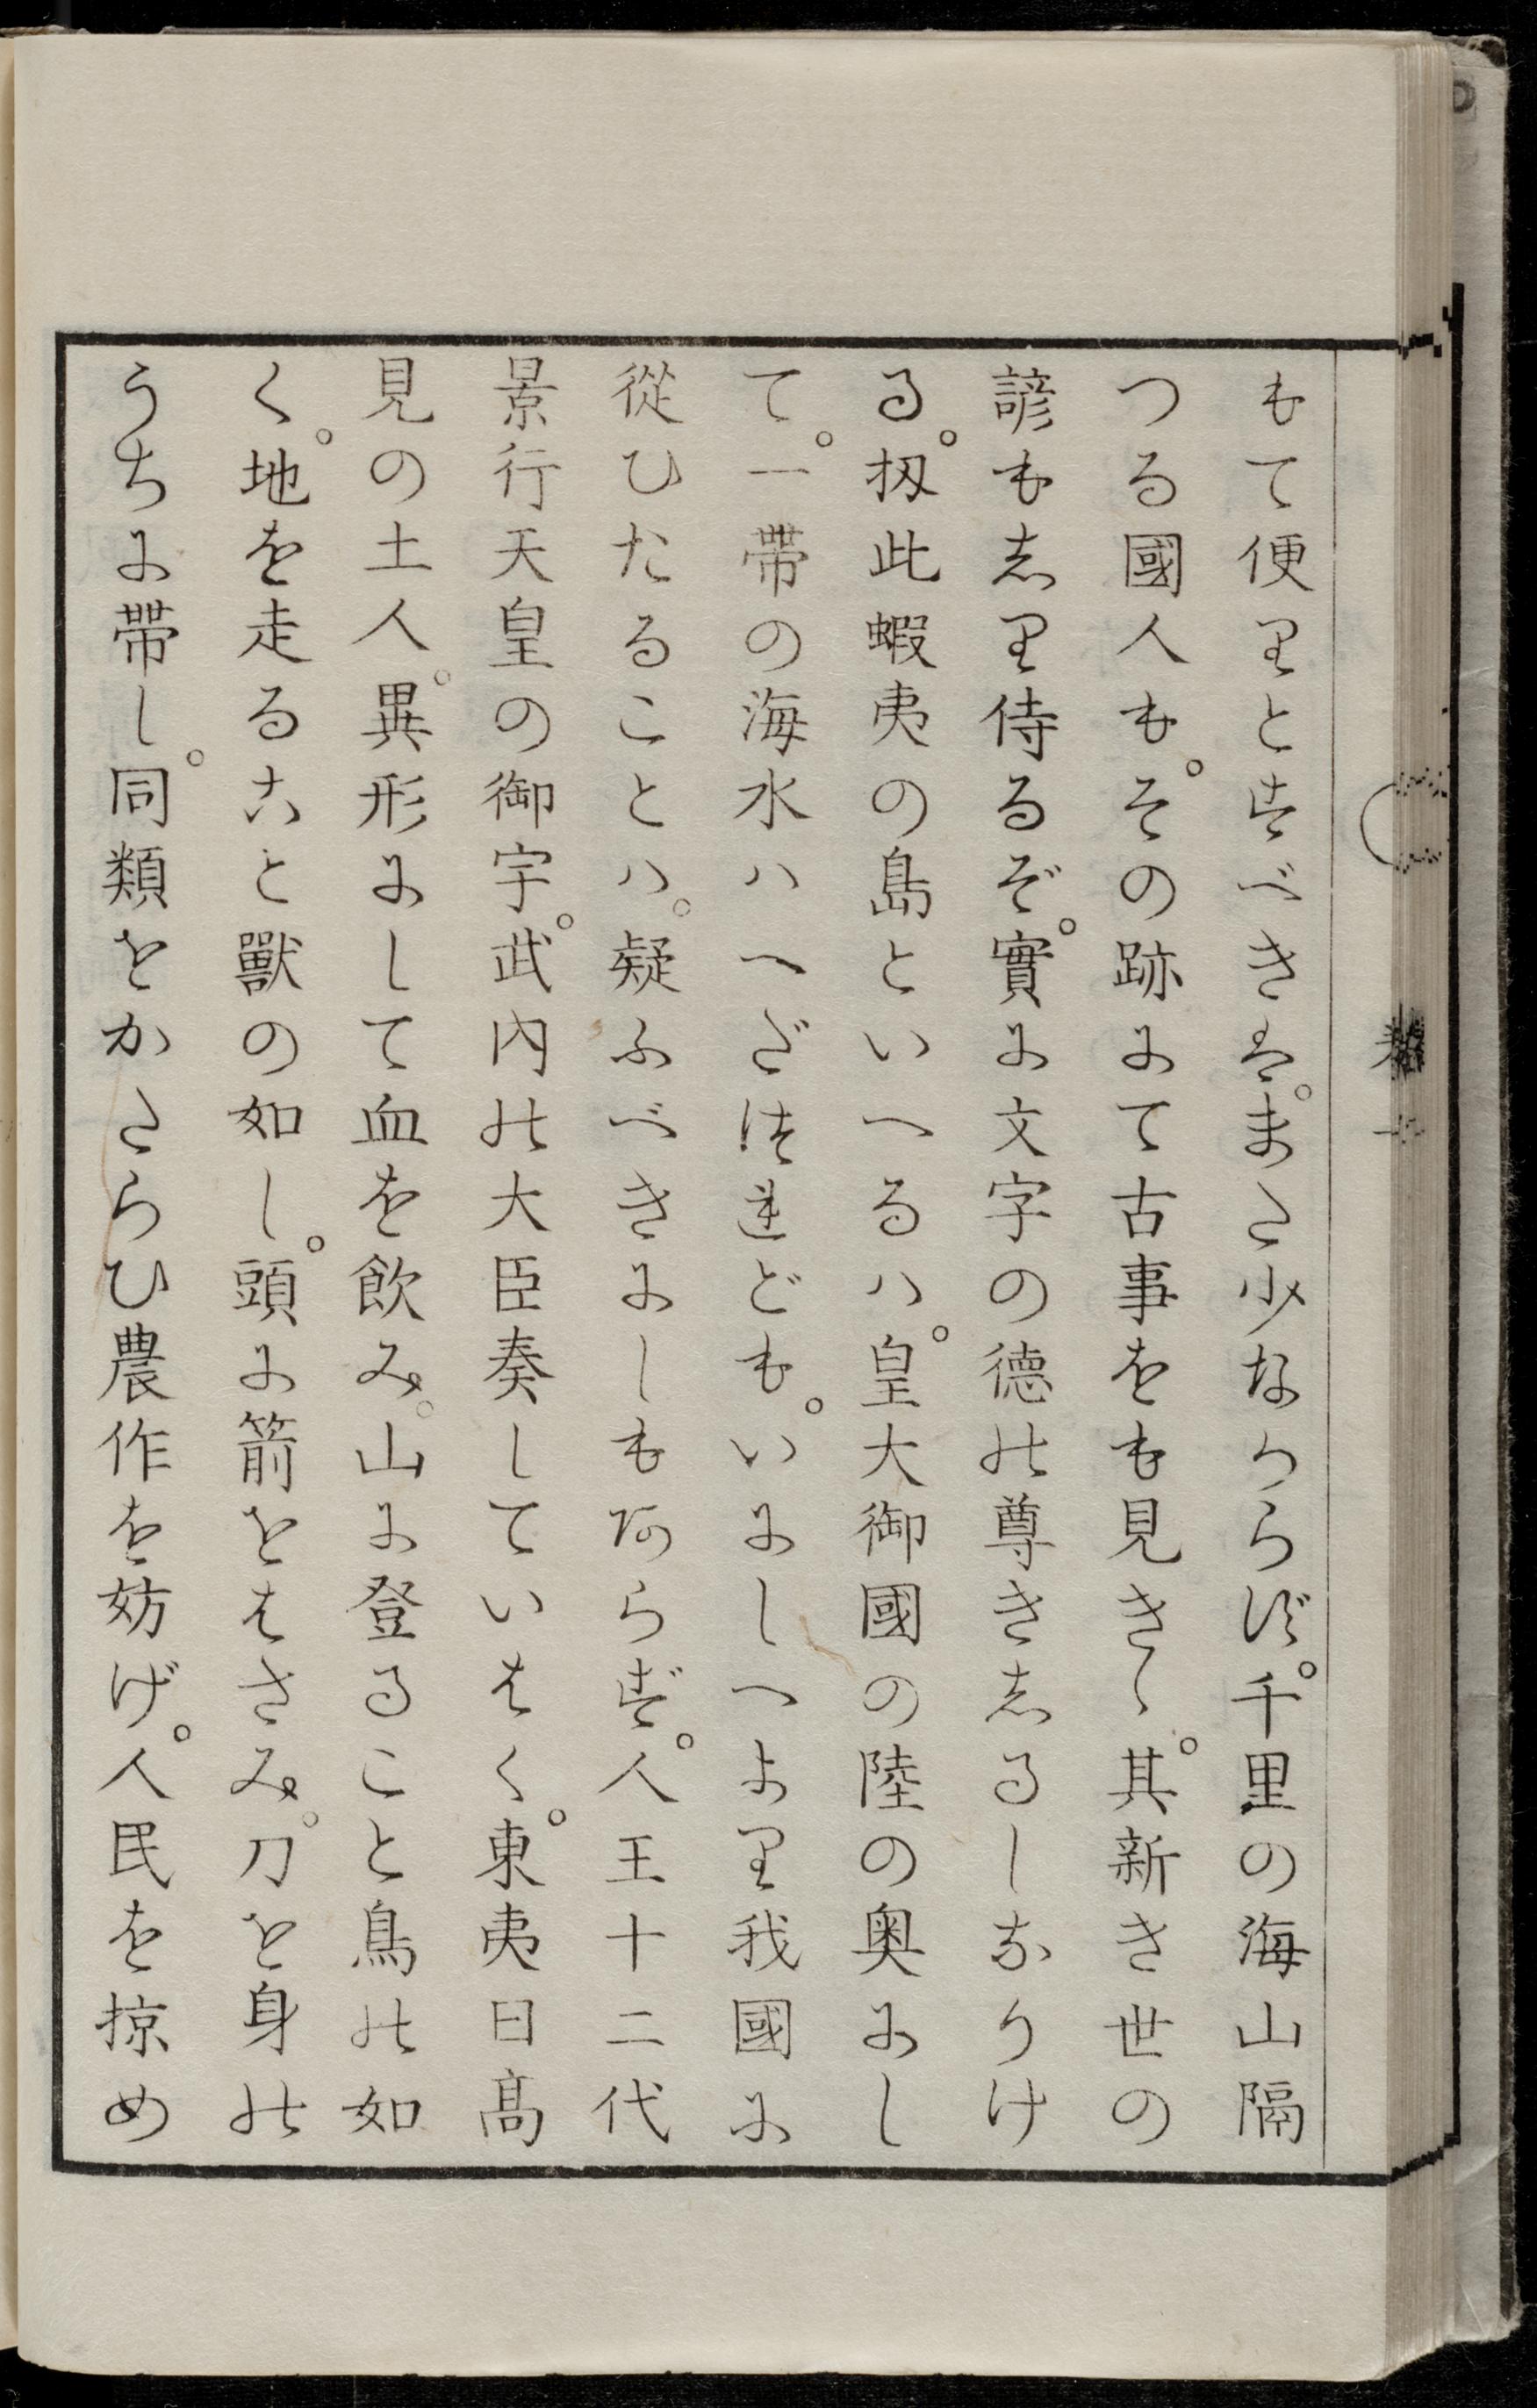 もて便りとすべきは。また少なからず。千里の海山隔
つる國人も。その跡にて古事をも見きゝ。其新き世の
諺もしり侍るぞ。實に文字の德の尊きしるしなりけ
る。扨此蝦夷の島といへるハ。皇大御國の陸の奥にし
て。一帶の海水ハへだつれども。いにしへより我國に
從ひたることハ。疑ふべきにしもあらず。人王十二代
景行天皇の御宇。武内の大臣奏していはく。東夷日髙
見の土人。異形にして血を飲み。山に登ること鳥の如
く。地を走ること獸の如し。頭に箭をはさみ。刀を身の
うちに帶し。同類をかたらひ農作を妨げ。人民を掠め